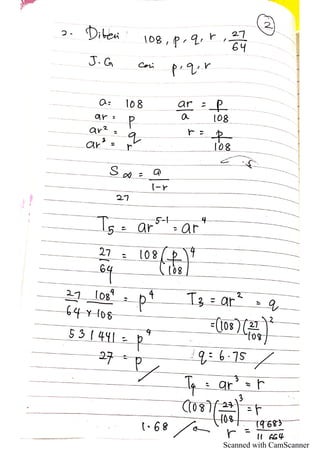 2
2. Diberi 108, p, q, r, 27/64
J.G cari p, q, r
a = 108
ar = p
ar² = q
ar³ = r
ar/a = p/108
r = p/108
S∞ = a/1-r
27
T5 = ar^5-1 = ar⁴
27/64 = 108 (p/108)⁴
27/64 × 108⁴/108 = p⁴
531441 = p⁴
27 = p
T3 = ar² = q
= (108) (27/108)²
q = 6.75
T4 = ar³ = r
(108) (27/108)³ = r
1.68
r = 19683/11664
Scanned with CamScanner